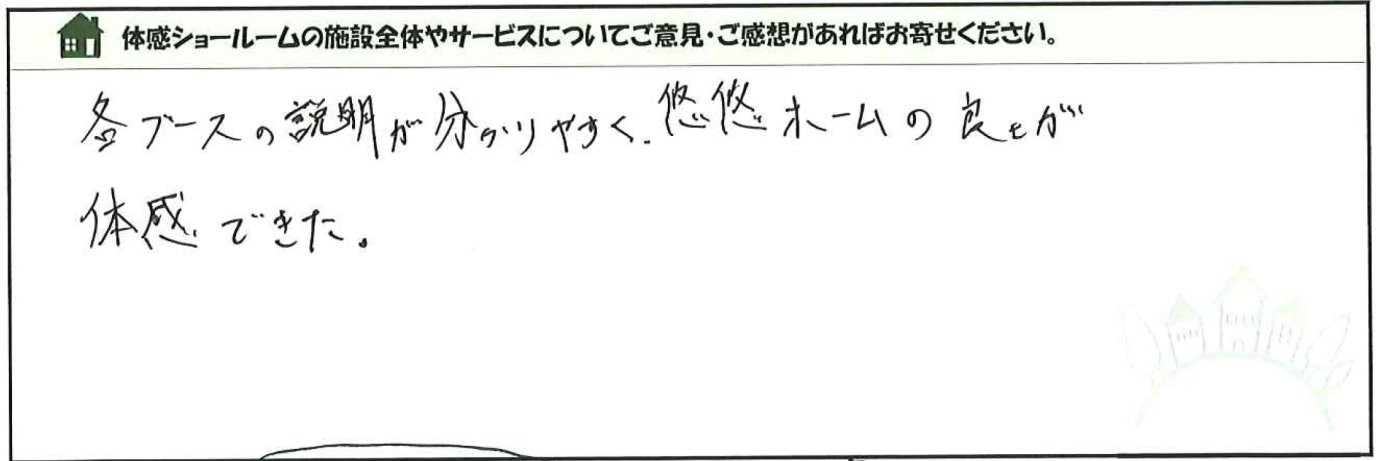 体感ショールームの施設全体やサービスについてご意見・ご感想があればお寄せください。
各ブースの説明が分かりやすく、悠悠ホームの良さが
体感できた。